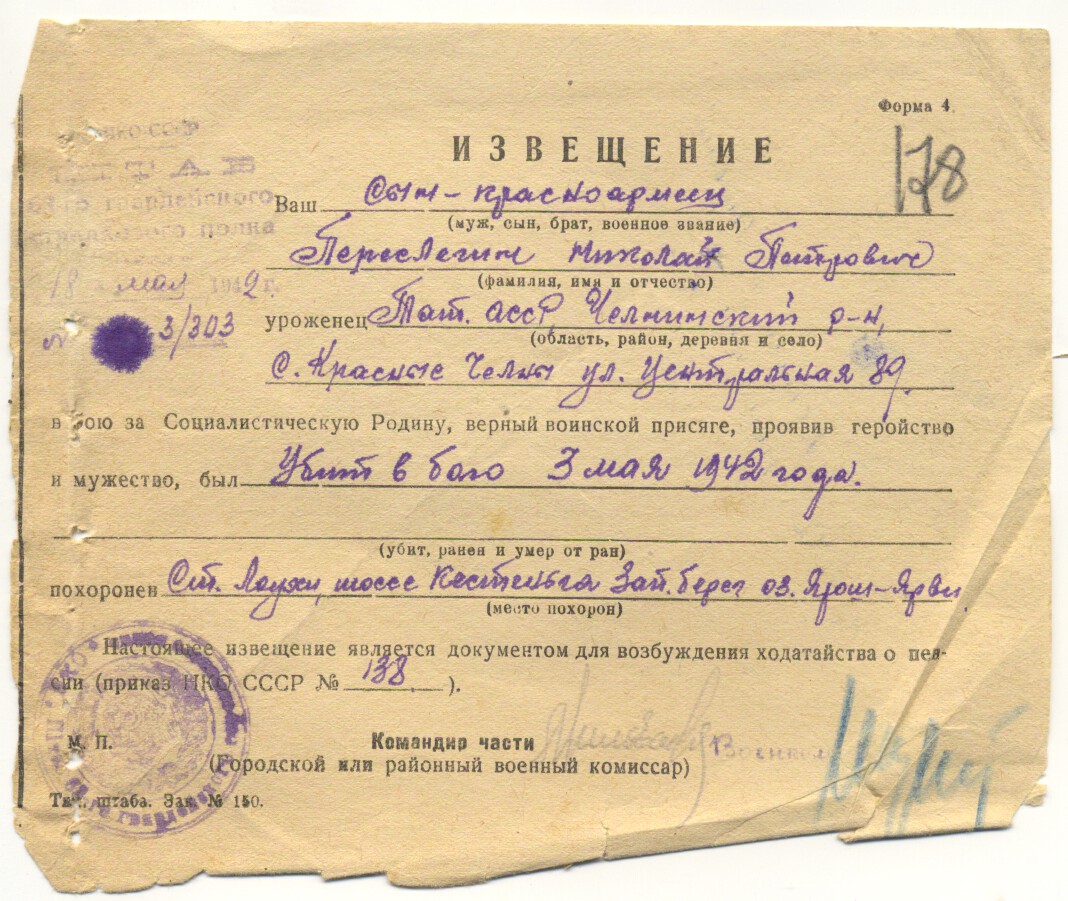 Форма 4.
ИЗВЕЩЕНИЕ
178
НКО СССР
ШТАБ
гвардейского
стрелкового полка
18 мая 1942 г.
№ 3/303
Ваш сын - красноармеец
(муж, сын, брат, военное звание)
Переслегин Николай Петрович
(фамилия, имя и отчество)
уроженец Тат. АССР, Челнинский р-н,
(область, район, деревня и село)
с. Красные Челны ул. Центральная 89.
в бою за Социалистическую Родину, верный воинской присяге, проявив геройство
и мужество, был Убит в бою 3 мая 1942 года.
(убит, ранен и умер от ран)
похоронен Ст. Лоухи, шоссе Кестеньга Зап. берег оз. Ярош-Ярви
(место похорон)
Настоящее извещение является документом для возбуждения ходатайства о пен-
сии (приказ НКО СССР № 138 ).
М. П.
Командир части
(Городской или районный военный комиссар)
Тип. штаба. Зак. № 150.